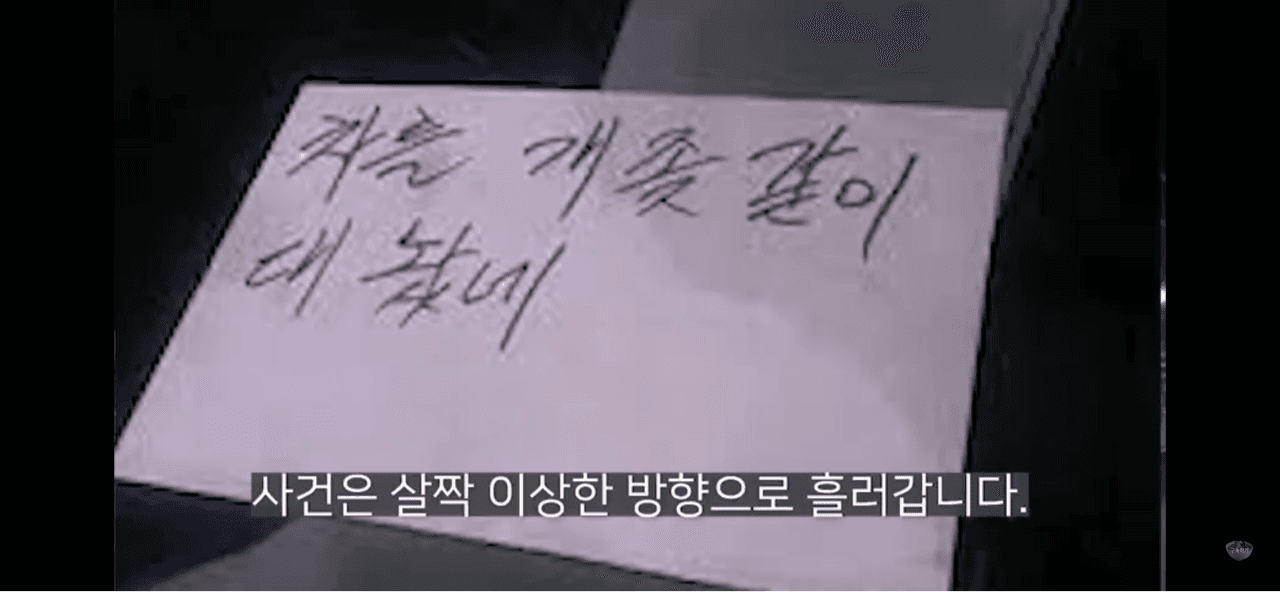 차를 개좆 같이
대 놨네
사건은 살짝 이상한 방향으로 흘러갑니다.